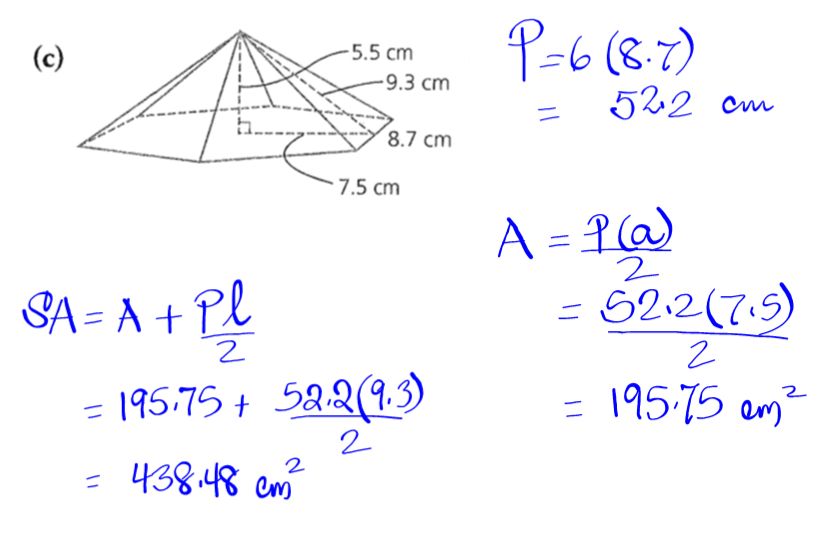 (c)
5.5 cm
9.3 cm
8.7 cm
7.5 cm
P = 6 (8.7)
= 52.2 cm
A = P(a)/2
= 52.2(7.5)/2
= 195.75 cm²
SA = A + Pl/2
= 195.75 + 52.2(9.3)/2
= 438.48 cm²